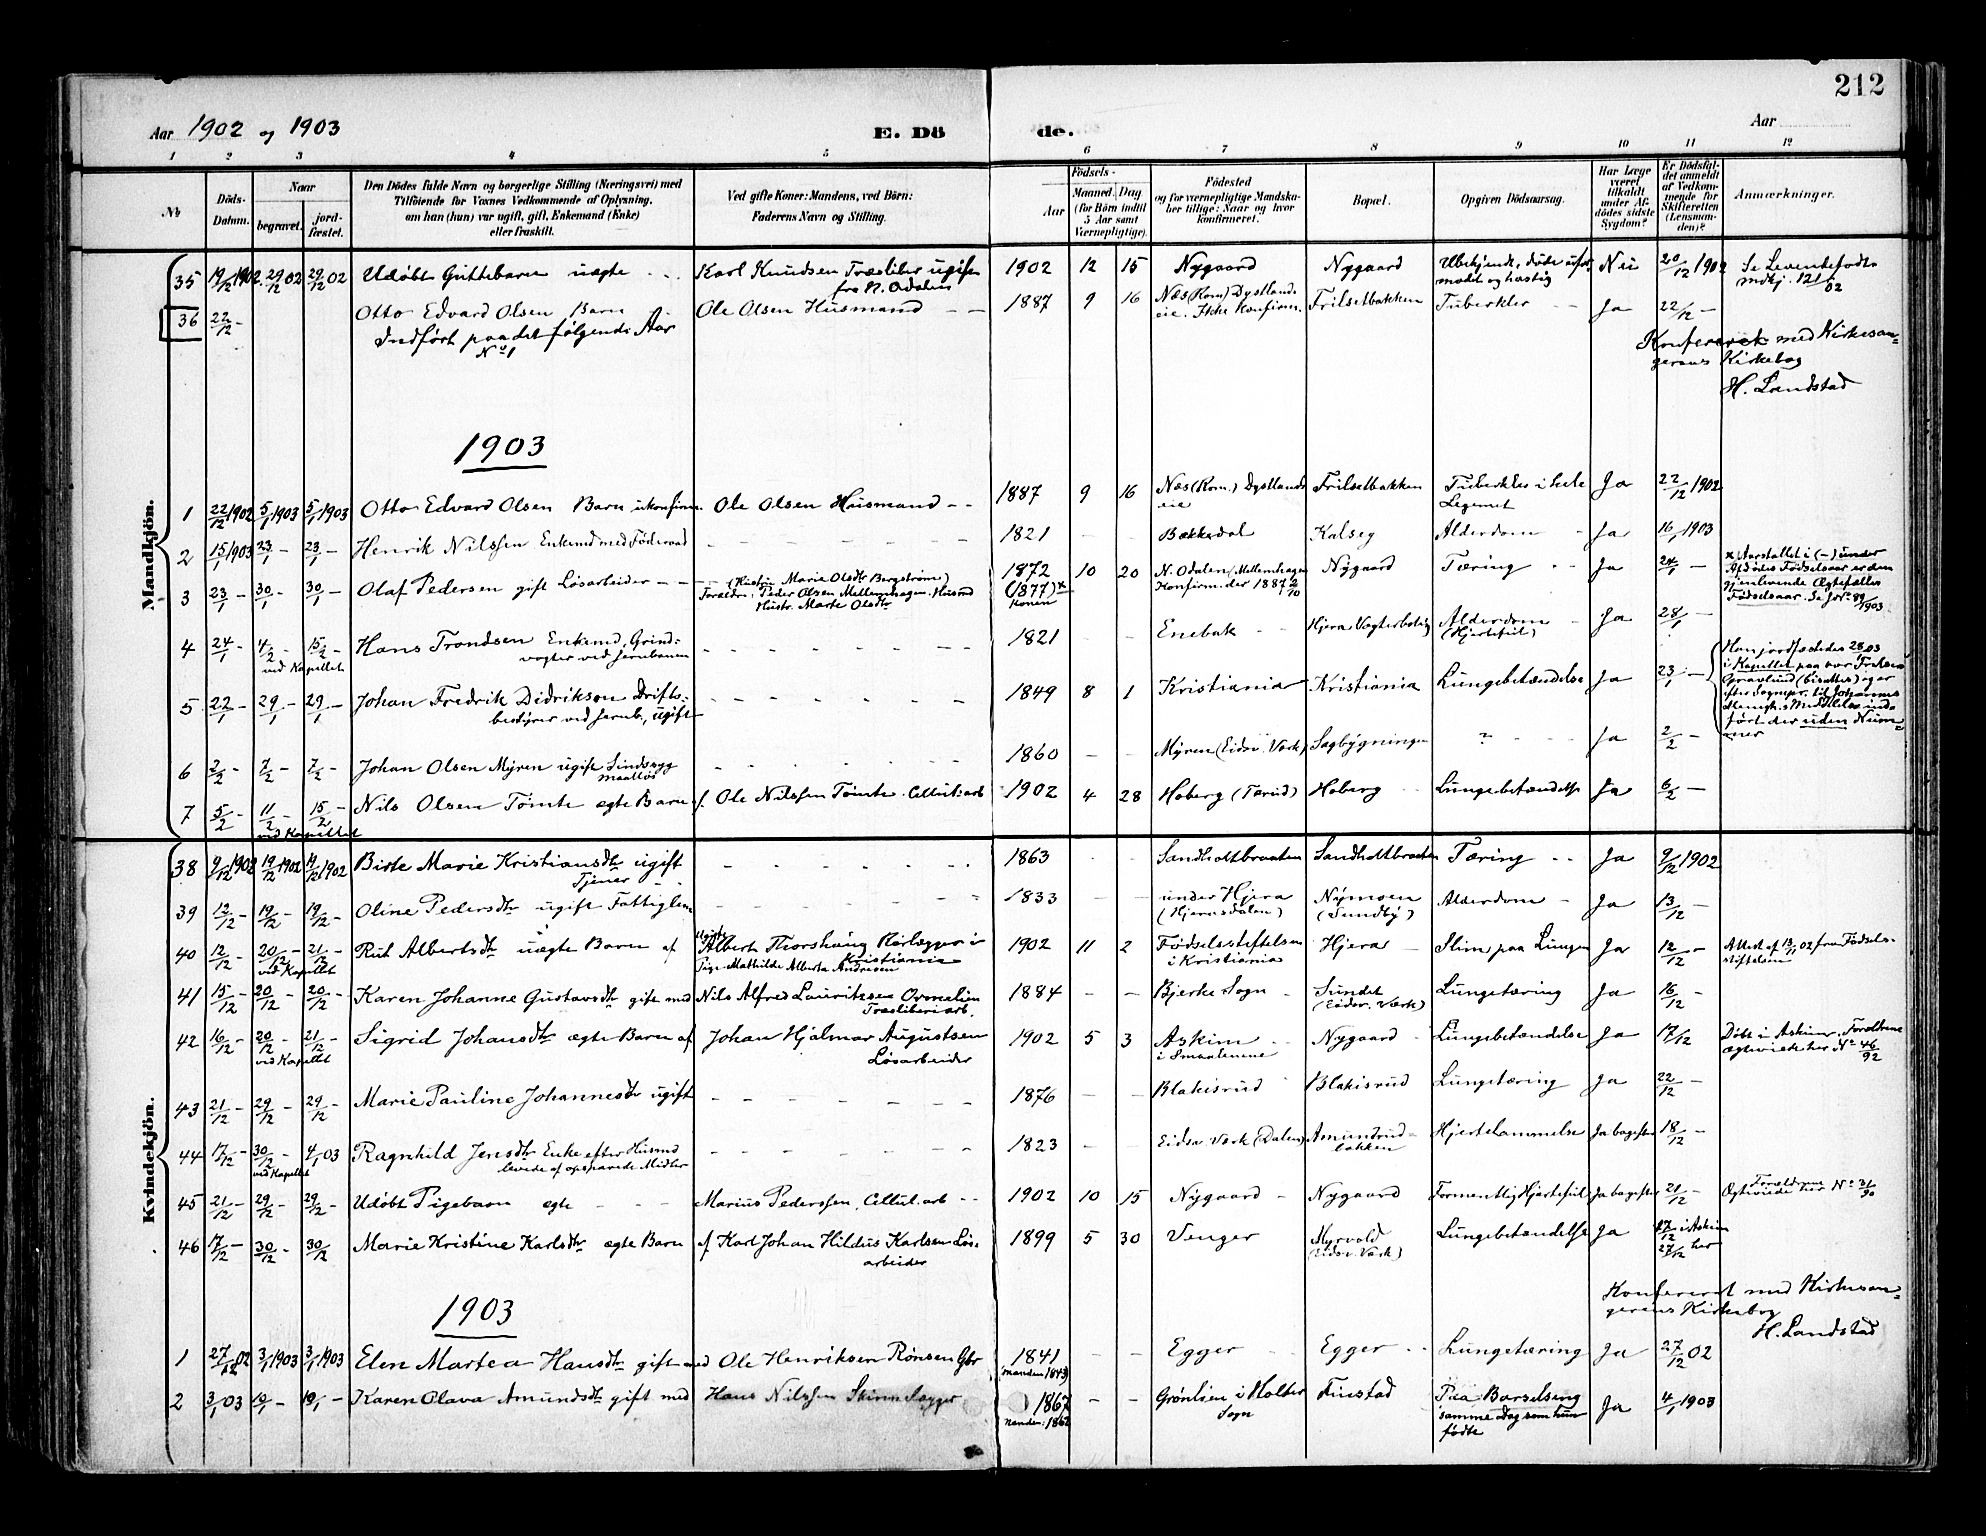 212
Aar 1902 og 1903
E. Dö
de.
Aar
1 2 3 4 5 6 7 8 9 10 11 12
No
Döds-Datum.
Naar
begravet.
jord-fæstet.
Den Dödes fulde Navn og borgerlige Stilling (Næringsvei) med
Tilföiende for Voxnes Vedkommende af Oplysning,
om han (hun) var ugift, gift, Enkemand (Enke)
eller fraskilt.
Ved gifte Koner: Mandens, ved Börn:
Faderens Navn og Stilling.
Födsels-
Aar
Maaned. Dag
(for Börn indtil
5 Aar samt
Værnepligtige).
Födested
og for værnepligtige Mandska-
ber tillige: Naar og hvor
konfirmeret.
Bopæl.
Opgiven Dödsaarsag.
Har Læge
været
tilkaldt
under Af-
dödes sidste
Sygdom?
Er Dödsfal-
det anmeldt
af Vedkom-
mende for
Skifteretten
(Lensman-
den)?
Anmærkninger.
Mandkjön.
35 19/12 1902 29/12 02 29/12 02 Udøbt Guttebarn uægte Karl Knudsen Træsliber ugift 1902 12 15 Nygaard Nygaard Ubekjendt, døde Nei 20/12 1902 Se Levendefødte
fra N. Odalen og hastig mdkj. 121/02
36 22/12 - Otto Edvard Olsen Barn Ole Olsen Husmand - - 1887 9 16 Næs (Rom.) Dystlands- Frilsetbakken Tuberkler Ja 22/12 -
eie. Ikke Konfirm.
Indført paa det følgende Aar
No 1
Konfereret med Kirkesan-
gerens Kirkebog
H. Landstad
1903
1 22/12 1902 5/1 1903 5/1 1903 Otto Edvard Olsen Barn ukonfirm. Ole Olsen Husmand - - 1887 9 16 Næs (Rom.) Dystlands Frilsetbakken Tuberkler i hele Ja 22/12 1902
eie Legemet
2 15/1 1903 23/1 - 23/1 - Henrik Nilssen Enkemd med Føderaad 1821 - - Bækkedal Kalseg Alderdom - Ja 16/1 1903
3 23/1 - 30/1 - 30/1 - Olaf Pedersen gift Løsarbeider - - (Kristin Marie Olsdtr Bergstrøm) 1872 10 20 N. Odalen, Mellemhagen Nygaard Tæring Ja 24/1 -
Forældre: Peder Olsen Mellemhagen Husmd (1877)* Konfirm. der 1887 2/10
Hustr. Marte Olsdtr Konen
* Aarstallet i (-) under
Afdødes Fødselsaar er den
gjenlevende Ægtefælles
Fødselsaar. Se J No 89/1903
4 24/1 - 4/2 - 15/2 - Hans Trondsen Enkemd, Grind- 1821 - - Enebak Hjera Vogterbolig Alderdom Ja 28/1 -
ved Kapellet vogter ved Jernbanen (Hjertefeil)
5 22/1 - 29/1 - 29/1 - Johan Fredrik Didrikson Drifts- 1849 8 1 Kristiania Kristiania Lungebetændelse Ja 23/1 -
bestyrer ved Jernb., ugift
Han jordfæstedes 28/1 03
i Kapellet paa vor Frelsers
Gravlund (bisattes) igaar
efter Sognepr. til Johannes
Menigh.s Meddelelse ind-
ført der uden Num-
mer
6 2/2 - 7/2 - 7/2 - Johan Olsen Myren ugift Sindssyg 1860 - - Myren (Eidsv. Værk) Sagbygningen ? Ja 2/2 -
maalløs
7 5/2 - 11/2 - 15/2 - Nils Olsen Tømte ægte Barn af Ole Nilssen Tømte Cellul. arb 1902 4 28 Hoberg (Tærud) Hoberg Lungebetændelse Ja 6/2 -
ved Kapellet
Kvindekjön.
38 9/12 1902 19/12 1902 19/12 1902 Birte Marie Kristiansdtr ugift 1863 Sandholtbraaten Sandholtbraaten Tæring - - Ja 9/12 1902
Tjener
39 12/12 - 19/12 - 19/12 - Oline Pedersdtr ugift Fattiglem 1833 - - under Hjera Nymoen Alderdom - Ja 13/12 -
(Hjerasdalen) (Sundby)
40 12/12 - 20/12 - 21/12 - Rut Albertsdtr uægte Barn af Ugift Albert Thorshaug Rørlægger i 1902 11 2 Fødselsstiftelsen Hjera Slim paa Lungen Ja 12/12 - Attest af 13/11 02 fra Fødsels-
ved Kapellet Kristiania i Kristiania stiftelsen
Pige Mathilde Alberta Andresen
41 15/12 - 20/12 - 20/12 - Karen Johanne Gustavsdtr gift med Nils Alfred Lauritzsen Ornelien 1884 - - Bjerke Sogn - Sundet Lungetæring Ja 16/12 -
Træsliberiarb. (Eidsv. Værk)
42 16/12 - 20/12 - 21/12 - Sigrid Johansdtr ægte Barn af Johan Hjalmar Augustsen 1902 5 3 Askim Nygaard Lungebetændelse Ja 17/12 Døbt i Askim. Forældrene
ved Kapellet Løsarbeider i Smaalenene Ægteviede her No 46/92
43 21/12 - 29/12 - 29/12 - Marie Pauline Johannesdtr ugift 1876 - - Blakisrud Blakisrud Lungetæring Ja 22/12 -
44 17/12 - 30/12 - 4/1 03 Ragnhild Jensdtr Enke efter Husmd 1823 - - Eidsv. Værk (Dalen) Amundrud- Hjertelammelse Ja bagefter 18/12 -
ved Kapellet levede af opsparede Midler bakken
45 21/12 - 29/12 - 29/12 - Udøbt Pigebarn ægte Marius Pederssen, Cellul. arb - - 1902 10 15 Nygaard - Nygaard Formentlig Hjertefeil Ja bagefter 21/12 - Forældrene
Ægteviede her No 31/90
46 17/12 - 30/12 - 30/12 Marie Kristine Karlsdtr ægte Barn af Karl Johan Hildus Karlsen Løs- 1899 5 30 Venger Myrvold Lungebetændelse Ja 17/12 i Askim
arbeider (Eidsv. Værk) 27/12 her
Konfereret med Kirkesan-
gerens Kirkebog
H. Landstad
1903
1 27/12 02 3/1 1903 3/1 1903 Elen Martea Hansdtr gift med Ole Henriksen Rønsen Gbr 1841 - - Egger Egger Lungetæring Ja 27/12 02
Manden 1843)
2 3/1 03 10/1 - 10/1 - Karen Olava Amundsdtr gift med Hans Nilssen Skinnelægger 1867 - - Grønlien i Holter Finstad Paa Barselseng Ja 4/1 1903
Manden: 1862 Sogn samme Dag som hun
fødte